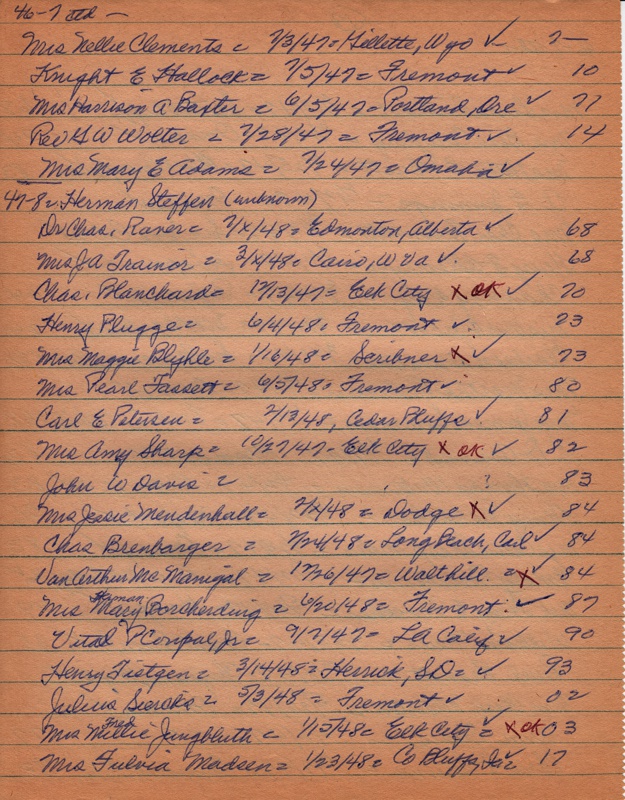 46-7 ctd —
Mrs Nellie Clements = 7/3/47 = Gillette, Wyo ✓ 7—
Knight E Hallock = 7/5/47 = Fremont ✓ 10
Mrs Harrison A Baxter = 6/5/47 = Portland, Ore ✓ 77
Rev G W Wolter = 7/28/47 = Fremont. ✓ 14
Mrs Mary E Adams = 7/24/47 = Omaha ✓
47-8 = Herman Steffen (unknown)
Dr Chas. Raner = 7/x/48 = Edmonton, Alberta ✓ 68
Mrs J A Trainor = 3/x/48 = Cairo, W Va ✓. 68
Chas. Blanchard = 12/13/47 = Elk City x OK ✓ 70
Henry Plugge = 6/4/48 = Fremont ✓. 73
Mrs Maggie Blyhle = 1/16/48 = Scribner x ✓ 73
Mrs Pearl Fassett = 6/5/48 = Fremont ✓ 80
Carl E Petersen = 2/13/48, Cedar Bluffs ✓. 81
Mrs Amy Sharp = 10/27/47 - Elk City x OK ✓ 82
John W Davis = ? 83
Mrs Jessie Mendenhall = 2/x/48 = Dodge x ✓ 84
Chas Brenbarger = 2/24/48 = Long Beach, Cal ✓ 84
Van Arthur McManigal = 12/26/47 = Walthill. = x ✓ 84
Mrs Herman Mary Borcherding = 6/20/48 = Fremont. ✓ 87
Vital P Coupal, Jr = 9/7/47 = LA Calif ✓ 90
Henry Tietgen = 3/14/48 = Herrick, SD = ✓ 93
Julius Siercks = 5/3/48 = Fremont ✓ 02
Mrs Fred Millie Jungbluth = 1/15/48 = Elk City = ✓ x OK 03
Mrs Fulvia Madsen = 1/23/48 = Co Bluffs, Ia ✓ = 17